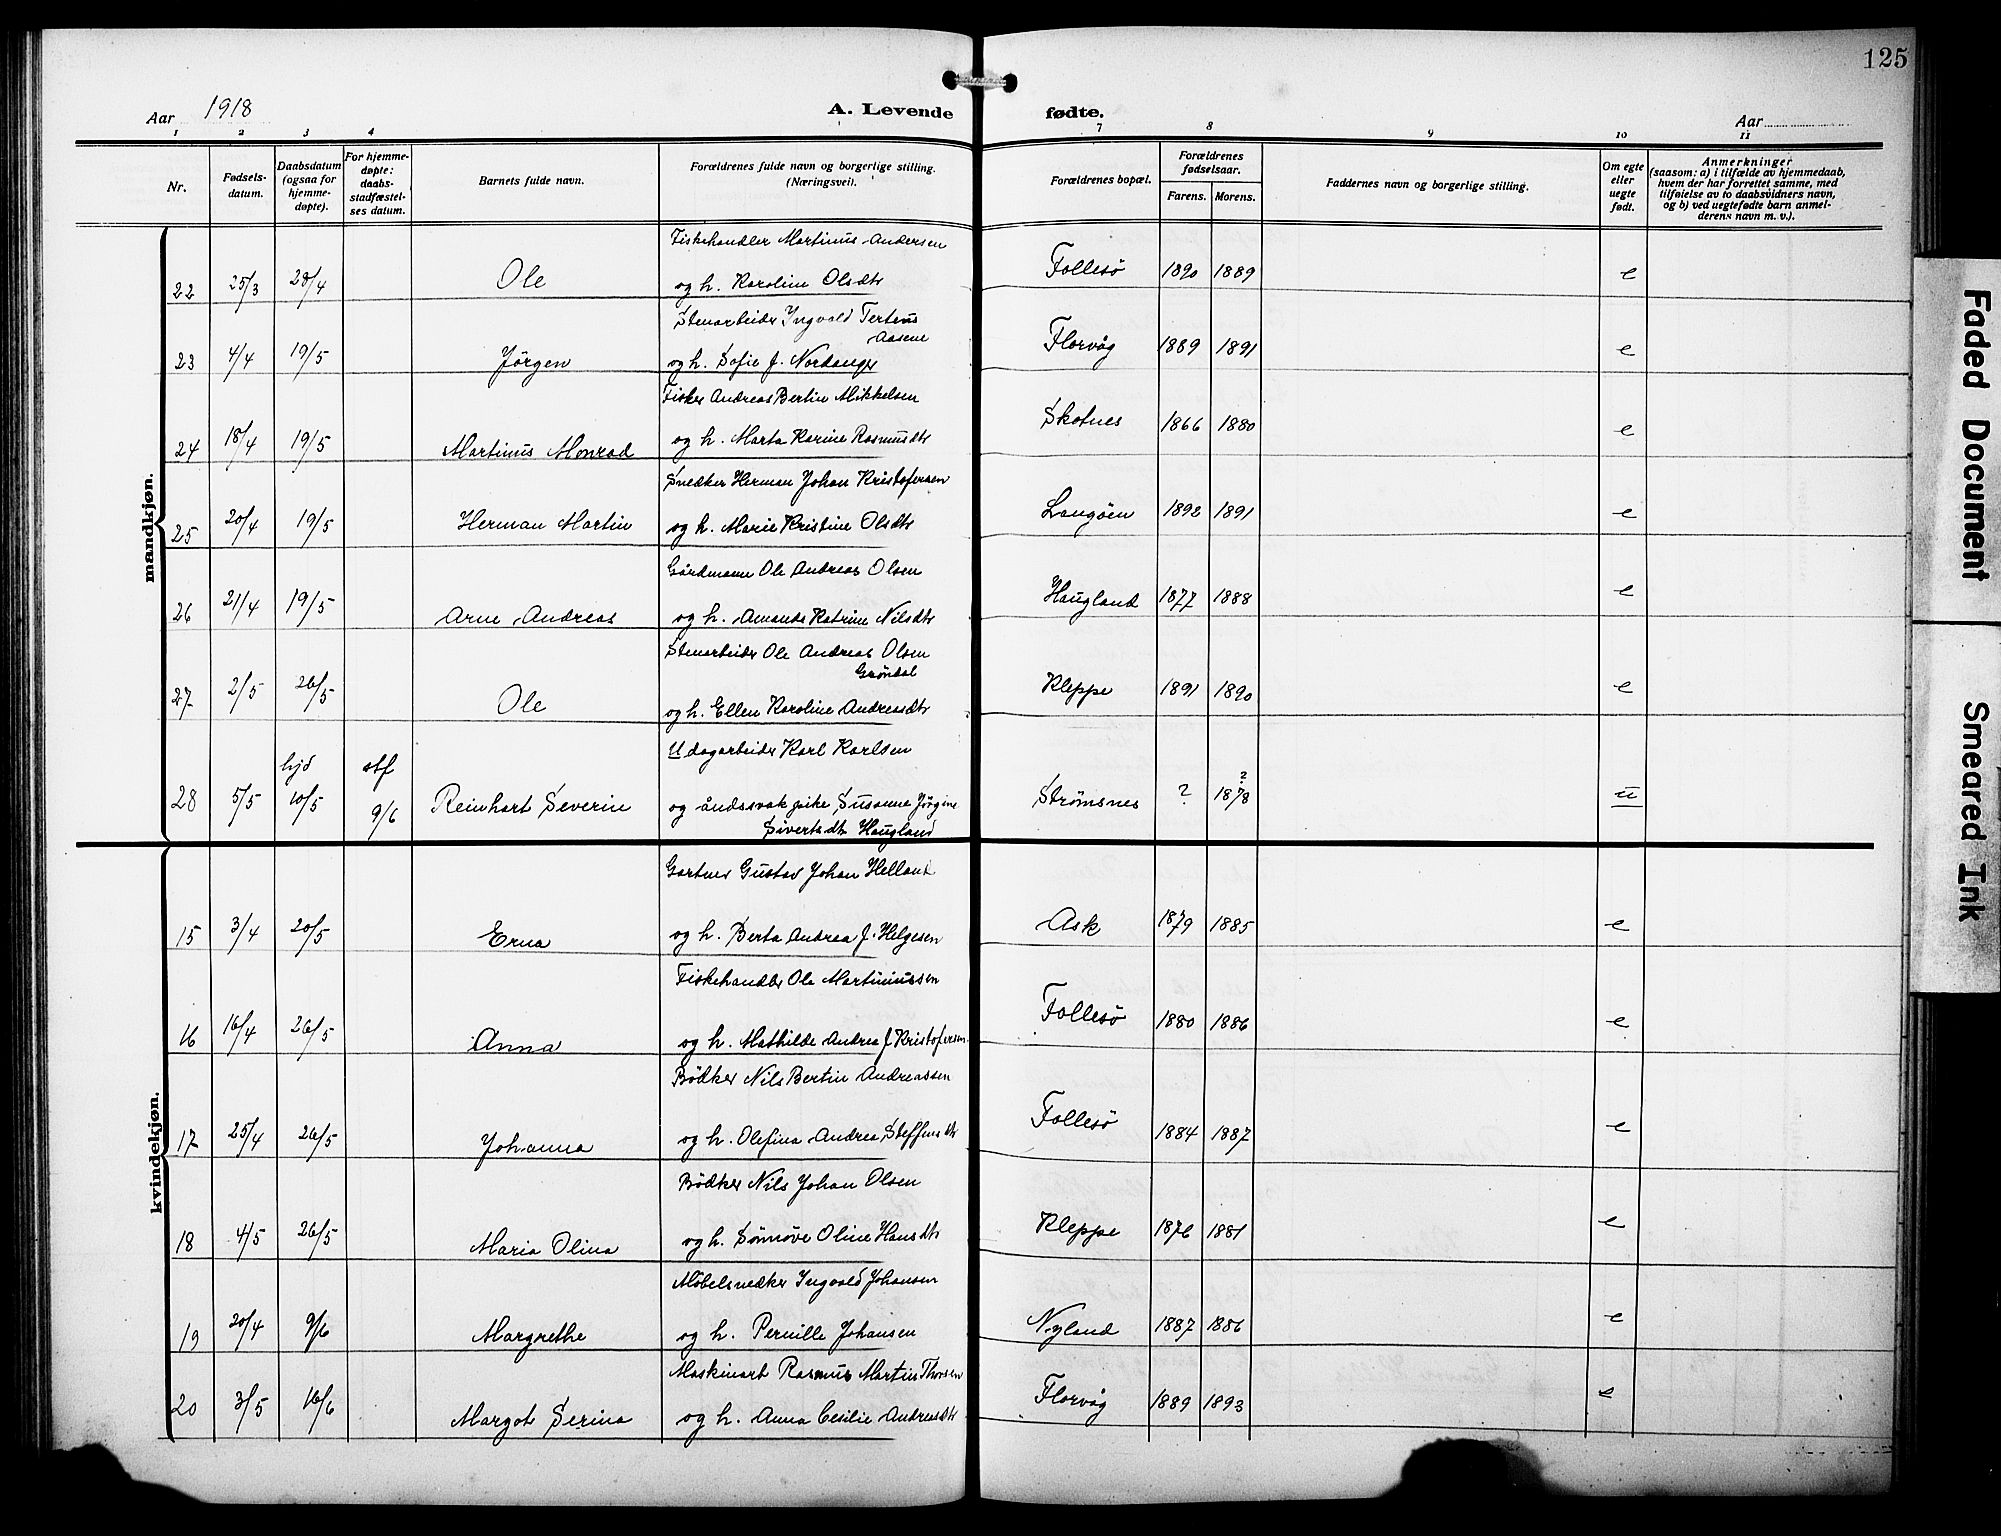 125
Aar 1918
A. Levende fødte.
Aar
1 2 3 4 7 8 9 10 11
Nr.
Fødsels-
datum.
Daabsdatum
(ogsaa for
hjemme-
døpte).
For hjemme-
døpte:
daabs-
stadfæstel-
ses datum.
Barnets fulde navn.
Forældrenes fulde navn og borgerlige stilling.
(Næringsvei).
Forældrenes bopæl.
Forældrenes
fødselsaar.
Farens. Morens.
Faddernes navn og borgerlige stilling.
Om egte
eller
uegte
født.
Anmerkninger
(saasom: a) i tilfælde av hjemmedaab,
hvem der har forrettet samme, med
tilføielse av to daabsvidners navn,
og b) ved uegtefødte barn anmel-
derens navn m. v.).
mandkjøn.
Fiskehandler Martinus Andersen
22 25/3 28/4 Ole og h. Karoline Olsdtr Follesö 1890 1889 e
Stenarbeider Ingvald Tertius
Aasene
23 4/4 19/5 Jörgen og h. Sofie J. Nordanger Florvåg 1889 1891 e
Fisker Andreas Bertin Mikkelsen
24 18/4 19/5 Martinus Monrad og h. Marta Karine Rasmusdtr Skotnes 1866 1880 e
Snedker Herman Johan Kristofersen
25 20/4 19/5 Herman Martin og h. Marie Kristine Olsdtr Langöen 1892 1891 e
Gårdmann Ole Andreas Olsen
26 21/4 19/5 Arne Andreas og h. Amanda Katrine Nilsdtr Haugland 1877 1888 e
Stenarbeider Ole Andreas Olsen
Gröndal
27 2/5 26/5 Ole og h. Ellen Karoline Andreasdtr Kleppe 1891 1890 e
U dagarbeider Karl Karlsen
hjd stf
28 5/5 10/5 9/6 Reinhart Severin og åndssvak pike Susanne Jörgine Strömsnes ? ? 1878 u
Sivertsdtr Haugland
kvindekjøn.
Gartner Gustav Johan Helland
15 3/4 20/5 Erna og h. Berta Andrea J. Helgesen Ask 1879 1885 e
Fiskehandler Ole Martinussen
16 16/4 26/5 Anna og h. Mathilde Andrea J. Kristofersen Follesö 1880 1886 e
Bödker Nils Bertin Andreassen
17 25/4 26/5 Johanna og h. Olefina Andrea Steffensdtr Follesö 1884 1887 e
Bödker Nils Johan Olsen
18 4/5 26/5 Maria Olina og h. Sönnöve Oline Hansdtr Kleppe 1876 1881 e
Möbelsnedker Ingvald Johansen
19 20/4 9/6 Margrethe og h. Pernille Johansen Nyland 1887 1886 e
Maskinarb Rasmus Martin Thorsen
20 3/5 16/6 Margot Serina og h. Anna Cecilie Andreasdtr Florvåg 1889 1893 e
Faded Document
Smeared Ink